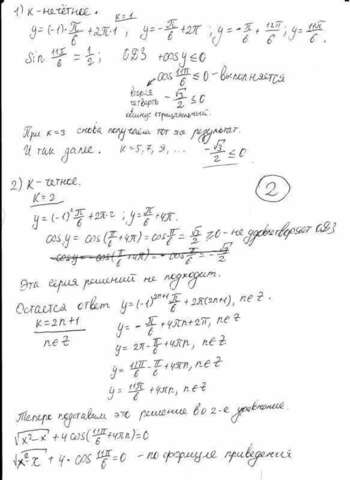 1) К-нечётное. к=1
y=(-1)·π/6+2π·1 ; y=-π/6+2π ; y=-π/6+12π/6 ; y=11π/6 ;
Sin 11π/6 = 1/2 ; ОДЗ +cosy≤0
cos 11π/6 ≤0 - выполняется
четверть -√3/2 ≤0
косинус отрицательный.
При к=3 снова получаем тот же результат.
И так далее. к=5,7,9,... -√3/2 ≤0.
2) К-четное. 2
к=2
y=(-1)²π/6+2π·2 ; y=π/6+4π.
cosy= cos(π/6+4π)=cos π/6=√3/2 ≥0 - не удовлетворяет ОДЗ
Эта серия решений не подходит.
Остаётся ответ y=(-1)²ⁿ⁺¹π/6+2π(2n+1), n∈Z.
к=2n+1
n∈Z
y=-π/6+4πn+2π, n∈Z
y=2π-π/6+4πn, n∈Z
y=12π/6-π/6+4πn, n∈Z
y=11π/6+4πn, n∈Z
Теперь подставим это решение во 2-е уравнение.
√x²-x+4cos(11π/6+4πn)=0
√x²-x+4·cos 11π/6=0 - по формуле приведения